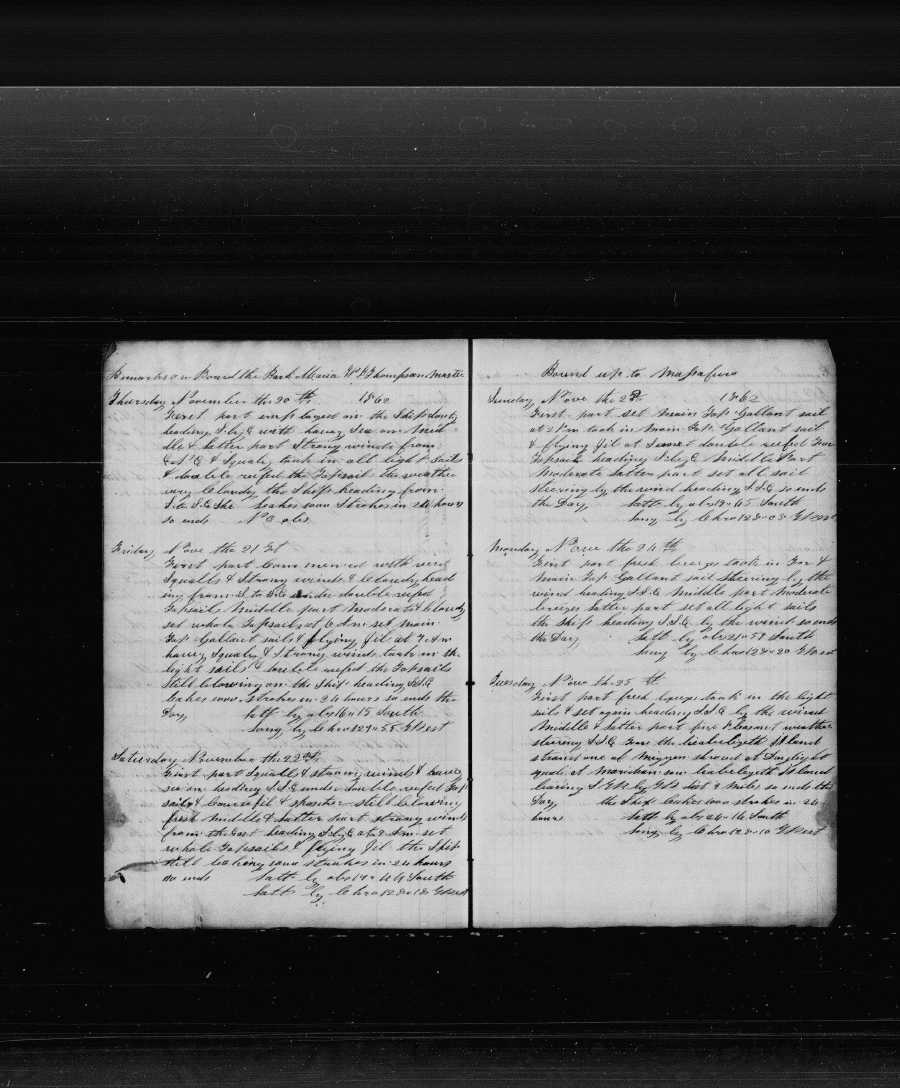 Remarks on Board the Bark Maria Wm P Thompson Master
Thursday November the 20 th 1862
First part employed on the Ships duty
heading S by E with heavy Sea on Mid
dle & latter part Strong winds from
E N E & Squaly took in all light Sails
& double reefed the Topsail the weather
very Cloudy the Ship heading from
S to S E She leakes 1000 Strokes in 24 hours
so ends No obs
Friday Nove the 21 st
First part Commenced with very
Squalls & Strong winds & Cloudy head
ing from S to S E under double reefed
Topsails Middle part Moderate & Cloudy
set whole Topsails at 6 Am set main
Top Gallant sails & flying jib at 7 Am
heavy Squaly & Strong winds took in the
light sails & double reefed the Topsails
still blowing on the Ship heading S S E
leakes 1000 Strokes in 24 hours so ends the
Day latt by obs 16 " 15 South
Long by Chro 127 " 55 West
Saturday November the 22 nd
First part Squalls & strong winds & heavy
sea on heading S S E under double reefed Top
sails & Course jib & spanker still blowing
fresh Middle & latter part strong winds
from the East heading S by E at 8 Am set
whole Topsails & flying jib the Ship
still leaking 1000 strokes in 24 hours
so ends latt by obs 17 " 44 South
latt by Chro 128 " 18 West
Bound up to Massafuro
Sunday Nove the 23 d 1862
First part set main Top Gallant sail
at 2 Pm took in Main Top Gallant sail
& flying jib at Sunset double reefed Four
Topsail heading S by E Middle Part
Moderate latter part set all sail
steering by the wind heading S S E so ends
the Day latt by obs 19 " 45 South
Long by Chro 128 " 08 West
Monday Nove the 24 th
First part fresh breezes took in For &
Main Top Gallant sail steering by the
wind heading S S E Middle part Moderate
breezes latter part set all light sails
the Ship heading S S E by the wind so ends
the Day latt by obs 21 " 57 South
Long by Chro 128 " 20 West
Tuesday Nove the 25 th
First part fresh breezes took in the light
sails & set again heading S S E by the wind
Middle & latter part fine Pleasant weather
steering S S E Four the Island
at Daylight
at Meridian saw Island
bearing miles so ends the
Day the Ship leakes 1000 strokes in 24
hours latt by obs 24 " 16 South
Long by Chro 128 " 10 West